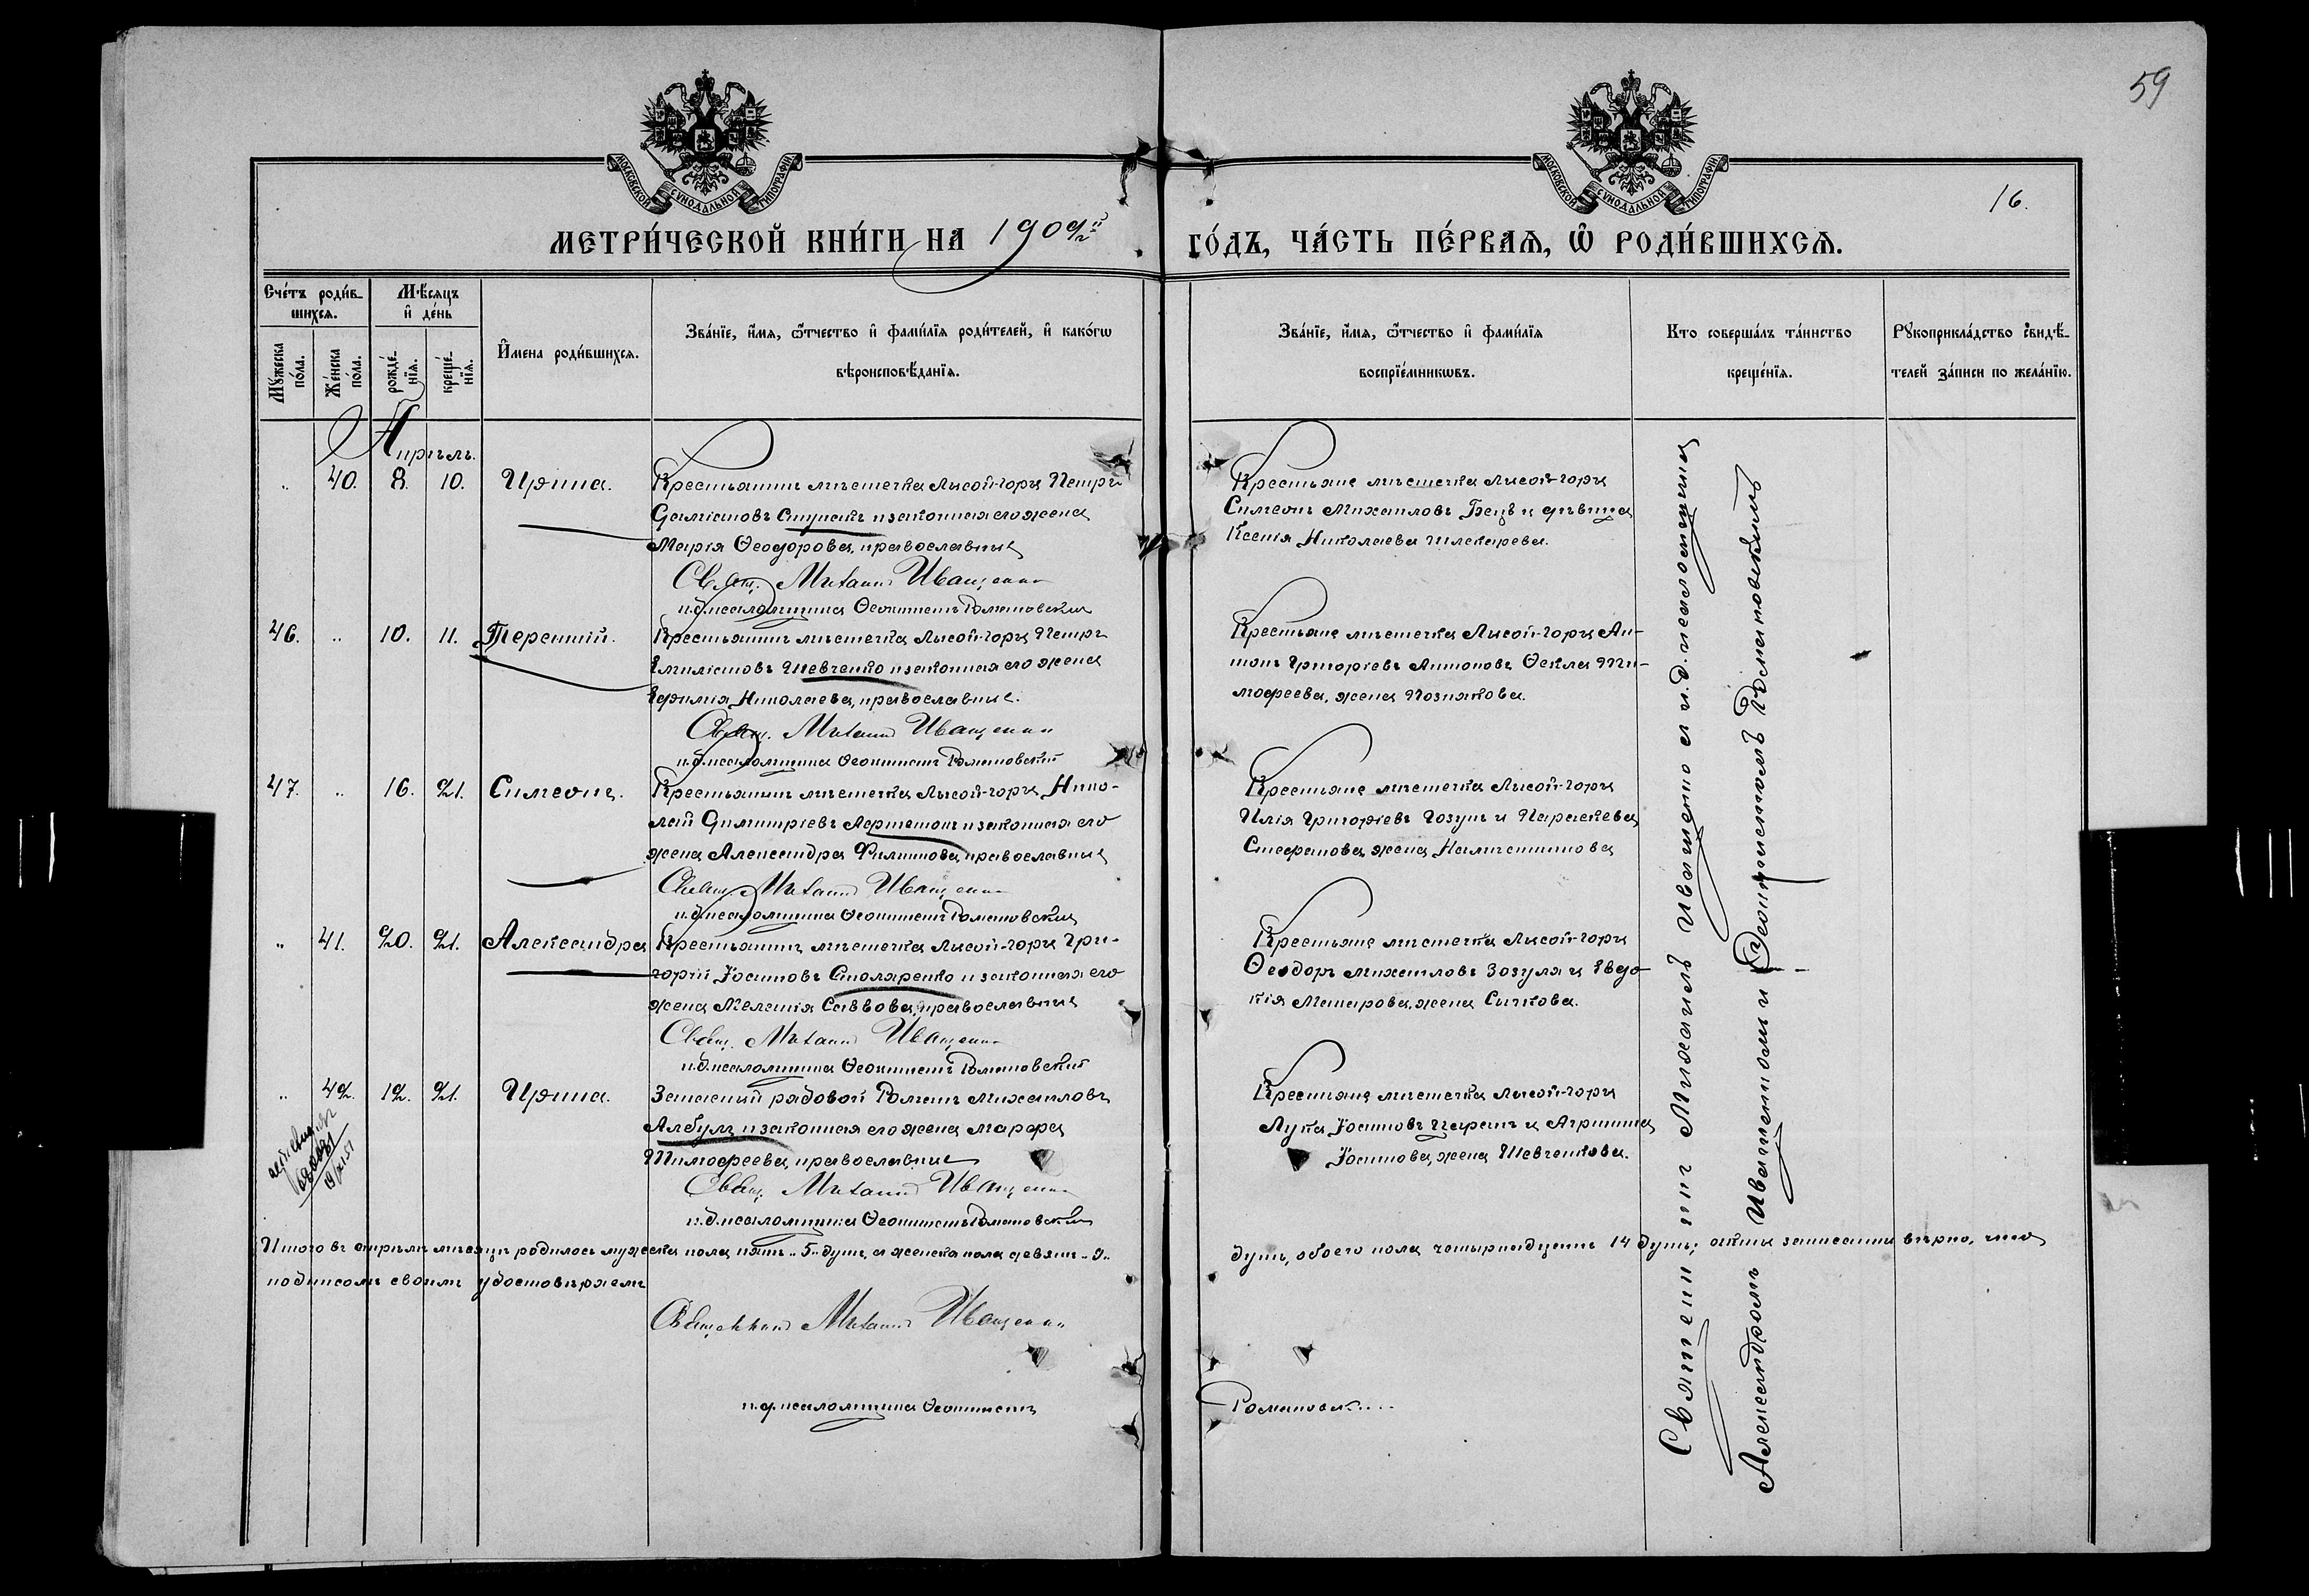 59
16.
МОСКОВСКОЙ СѴНОДАЛЬНОЙ ТИПОГРАФІИ
МОСКОВСКОЙ СѴНОДАЛЬНОЙ ТИПОГРАФІИ
МЕТРИ́ЧЕСКОЙ КНИ́ГИ НА 1902й ГО́ДЪ, ЧА́СТЬ ПЕ́РВАЯ, Ѡ РОДИ́ВШИХСЯ.
Сче́тъ роди́в-
шихся.
Мѣ́сяцъ
и де́нь
Му́жеска по́ла.
Же́нска по́ла.
рожде́-
нїя.
креще́-
нїя.
И́мена роди́вшихся.
Зва́нїе, и́мя, ѻ́тчество и фами́лїя роди́телей, и како́гѡ
вѣроисповѣ́данїя.
Зва́нїе, и́мя, ѻ́тчество и фами́лїя
воспрїе́мникѡвъ.
Кто соверша́лъ та́инство
креще́нїя.
Рꙋкоприкла́дство свидѣ́-
телей за́писи по жела́нїю.
Апрѣль.
„ 40. 8. 10. Ирина.
Крестьянинъ мѣстечка Лысой-горы Петръ
Даміановъ и законная его жена
Марія Ѳеодорова, православные
Свящ. Михаилъ Иващенко
и.д. псаломщика Ѳеоктистъ Романовскій
Крестьяне мѣстечка Лысой-горы
Симеонъ Михаиловъ Бецъ и дѣвица
Ксенія Николаева Шлекарева.
46. „ 10. 11. Терентій.
Крестьянинъ мѣстечка Лысой-горы Петръ
Емиліановъ Шевченко и законная его жена
Евфимія Николаева, православные.
Свящ. Михаилъ Иващенко
и.д. псаломщика Ѳеоктистъ Романовскій
Крестьяне мѣстечка Лысой-горы Ан-
тонъ Григоріевъ Антоновъ Ѳекла Ти-
моѳеева, жена Познякова.
47. „ 16. 21. Симеонъ.
Крестьянинъ мѣстечка Лысой-горы Нико-
лай Димитріевъ и законная его
жена Александра Филиппова, православные
Свящ. Михаилъ Иващенко
и.д. псаломщика Ѳеоктистъ Романовскій
Крестьяне мѣстечка Лысой-горы
Илія Григоріевъ Гозунъ и Параскева
Стефанова, жена
„ 41. 20. 21. Александра
Крестьянинъ мѣстечка Лысой-горы Гри-
горій Іоанновъ Столяренко и законная его
жена Меланія Саввова, православные
Свящ. Михаилъ Иващенко
и.д. псаломщика Ѳеоктистъ Романовскій
Крестьяне мѣстечка Лысой-горы
Ѳеодоръ Михаиловъ Зозуля и Евдо-
кія Макарова, жена Сычкова.
„ 42. 12. 21. Ирина.
Запасный рядовой Романъ Михаиловъ
Албулъ и законная его жена Марѳа
Тимоѳеева, православные
Свящ. Михаилъ Иващенко
и.д. псаломщика Ѳеоктистъ Романовскій
Крестьяне мѣстечка Лысой-горы
Лука Іоанновъ Царанъ и Агриппина
Іоаннова, жена Шевченкова.
Священникъ Михаилъ Иващенко съ и.д. псаломщика
Александромъ Иващенкомъ и Ѳеоктистомъ Романовскимъ
Итого въ апрѣлѣ мѣсяцѣ родилось мужеска пола пять „5„ душъ, а женска пола девять „9„ душъ, обоего пола четырнадцать 14 душъ; акты записаны вѣрно, что
подписомъ своимъ удостовѣряемъ
Священникъ Михаилъ Иващенко
и.д. псаломщика Ѳеоктистъ Романовск....